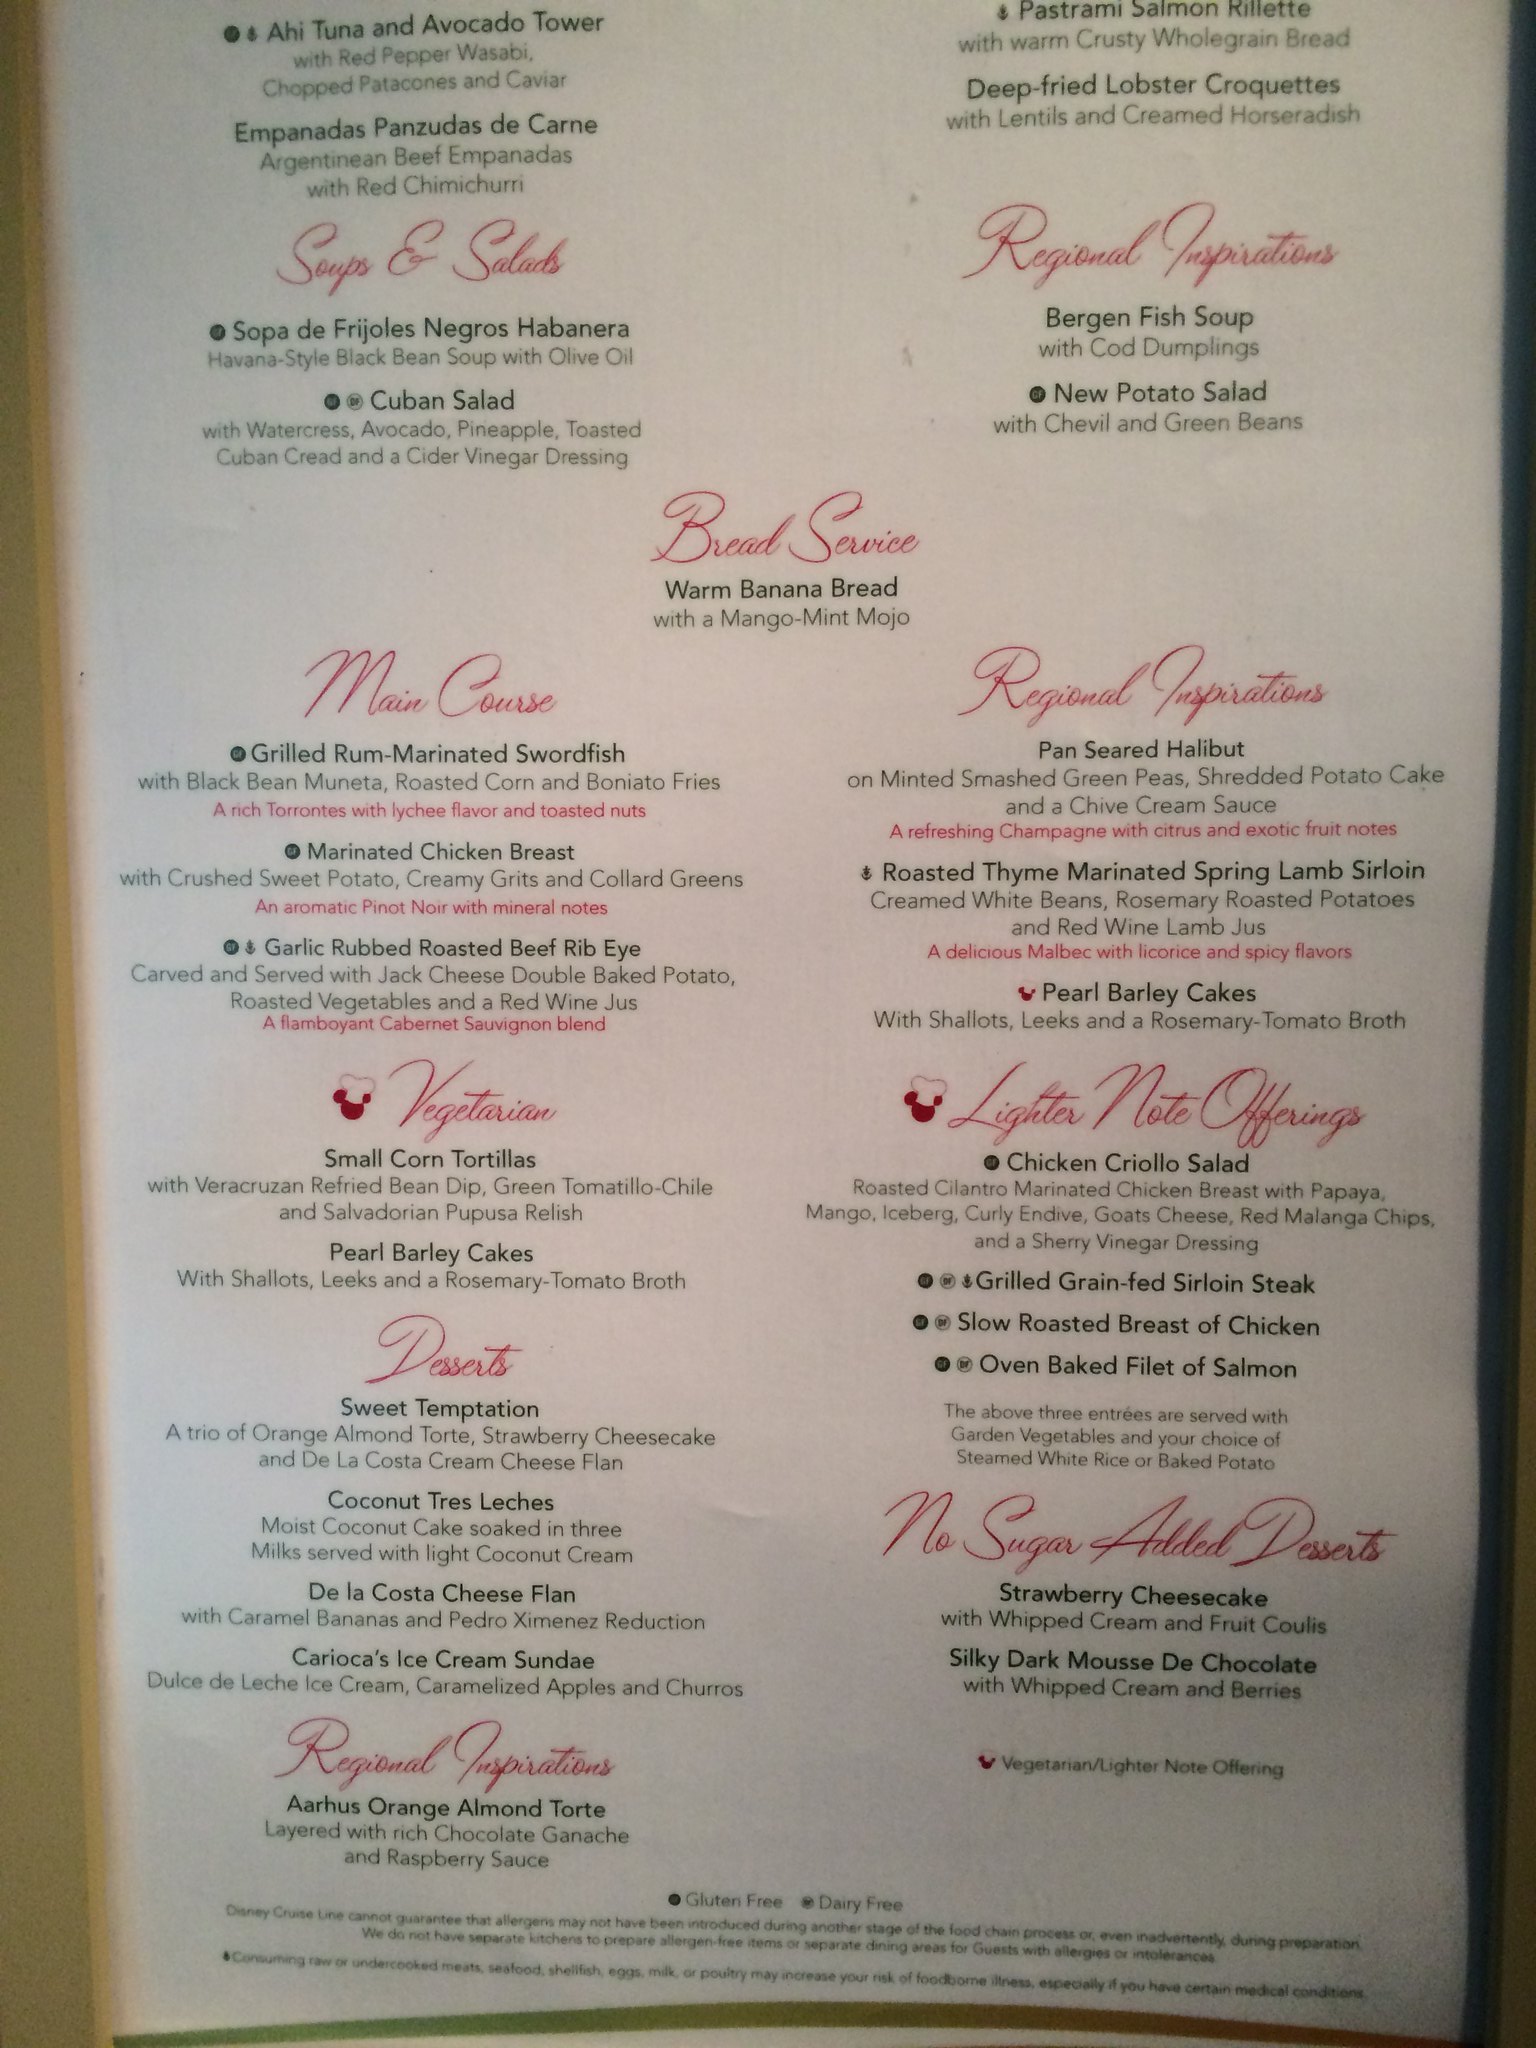 Ahi Tuna and Avocado Tower
with Red Pepper Wasabi,
Chopped Patacones and Caviar
Empanadas Panzudas de Carne
Argentinean Beef Empanadas
with Red Chimichurri
Pastrami Salmon Rillette
with warm Crusty Wholegrain Bread
Deep-fried Lobster Croquettes
with Lentils and Creamed Horseradish
Soups & Salads
GF Sopa de Frijoles Negros Habanera
Havana-Style Black Bean Soup with Olive Oil
GF DF Cuban Salad
with Watercress, Avocado, Pineapple, Toasted
Cuban Cread and a Cider Vinegar Dressing
Regional Inspirations
Bergen Fish Soup
with Cod Dumplings
GF New Potato Salad
with Chevil and Green Beans
Bread Service
Warm Banana Bread
with a Mango-Mint Mojo
Main Course
GF Grilled Rum-Marinated Swordfish
with Black Bean Muneta, Roasted Corn and Boniato Fries
A rich Torrontes with lychee flavor and toasted nuts
GF Marinated Chicken Breast
with Crushed Sweet Potato, Creamy Grits and Collard Greens
An aromatic Pinot Noir with mineral notes
GF Garlic Rubbed Roasted Beef Rib Eye
Carved and Served with Jack Cheese Double Baked Potato,
Roasted Vegetables and a Red Wine Jus
A flamboyant Cabernet Sauvignon blend
Regional Inspirations
Pan Seared Halibut
on Minted Smashed Green Peas, Shredded Potato Cake
and a Chive Cream Sauce
A refreshing Champagne with citrus and exotic fruit notes
Roasted Thyme Marinated Spring Lamb Sirloin
Creamed White Beans, Rosemary Roasted Potatoes
and Red Wine Lamb Jus
A delicious Malbec with licorice and spicy flavors
Pearl Barley Cakes
With Shallots, Leeks and a Rosemary-Tomato Broth
Vegetarian
Small Corn Tortillas
with Veracruzan Refried Bean Dip, Green Tomatillo-Chile
and Salvadorian Pupusa Relish
Pearl Barley Cakes
With Shallots, Leeks and a Rosemary-Tomato Broth
Lighter Note Offerings
GF Chicken Criollo Salad
Roasted Cilantro Marinated Chicken Breast with Papaya,
Mango, Iceberg, Curly Endive, Goats Cheese, Red Malanga Chips,
and a Sherry Vinegar Dressing
GF DF Grilled Grain-fed Sirloin Steak
GF DF Slow Roasted Breast of Chicken
GF DF Oven Baked Filet of Salmon
The above three entrées are served with
Garden Vegetables and your choice of
Steamed White Rice or Baked Potato
Desserts
Sweet Temptation
A trio of Orange Almond Torte, Strawberry Cheesecake
and De La Costa Cream Cheese Flan
Coconut Tres Leches
Moist Coconut Cake soaked in three
Milks served with light Coconut Cream
De la Costa Cheese Flan
with Caramel Bananas and Pedro Ximenez Reduction
Carioca's Ice Cream Sundae
Dulce de Leche Ice Cream, Caramelized Apples and Churros
No Sugar Added Desserts
Strawberry Cheesecake
with Whipped Cream and Fruit Coulis
Silky Dark Mousse De Chocolate
with Whipped Cream and Berries
Regional Inspirations
Aarhus Orange Almond Torte
Layered with rich Chocolate Ganache
and Raspberry Sauce
Vegetarian/Lighter Note Offering
Gluten Free Dairy Free
Disney Cruise Line cannot guarantee that allergens may not have been introduced during another stage of the food chain process or, even inadvertently, during preparation.
We do not have separate kitchens to prepare allergen-free items or separate dining areas for Guests with allergies or intolerances.
Consuming raw or undercooked meats, seafood, shellfish, eggs, milk, or poultry may increase your risk of foodborne illness, especially if you have certain medical conditions.